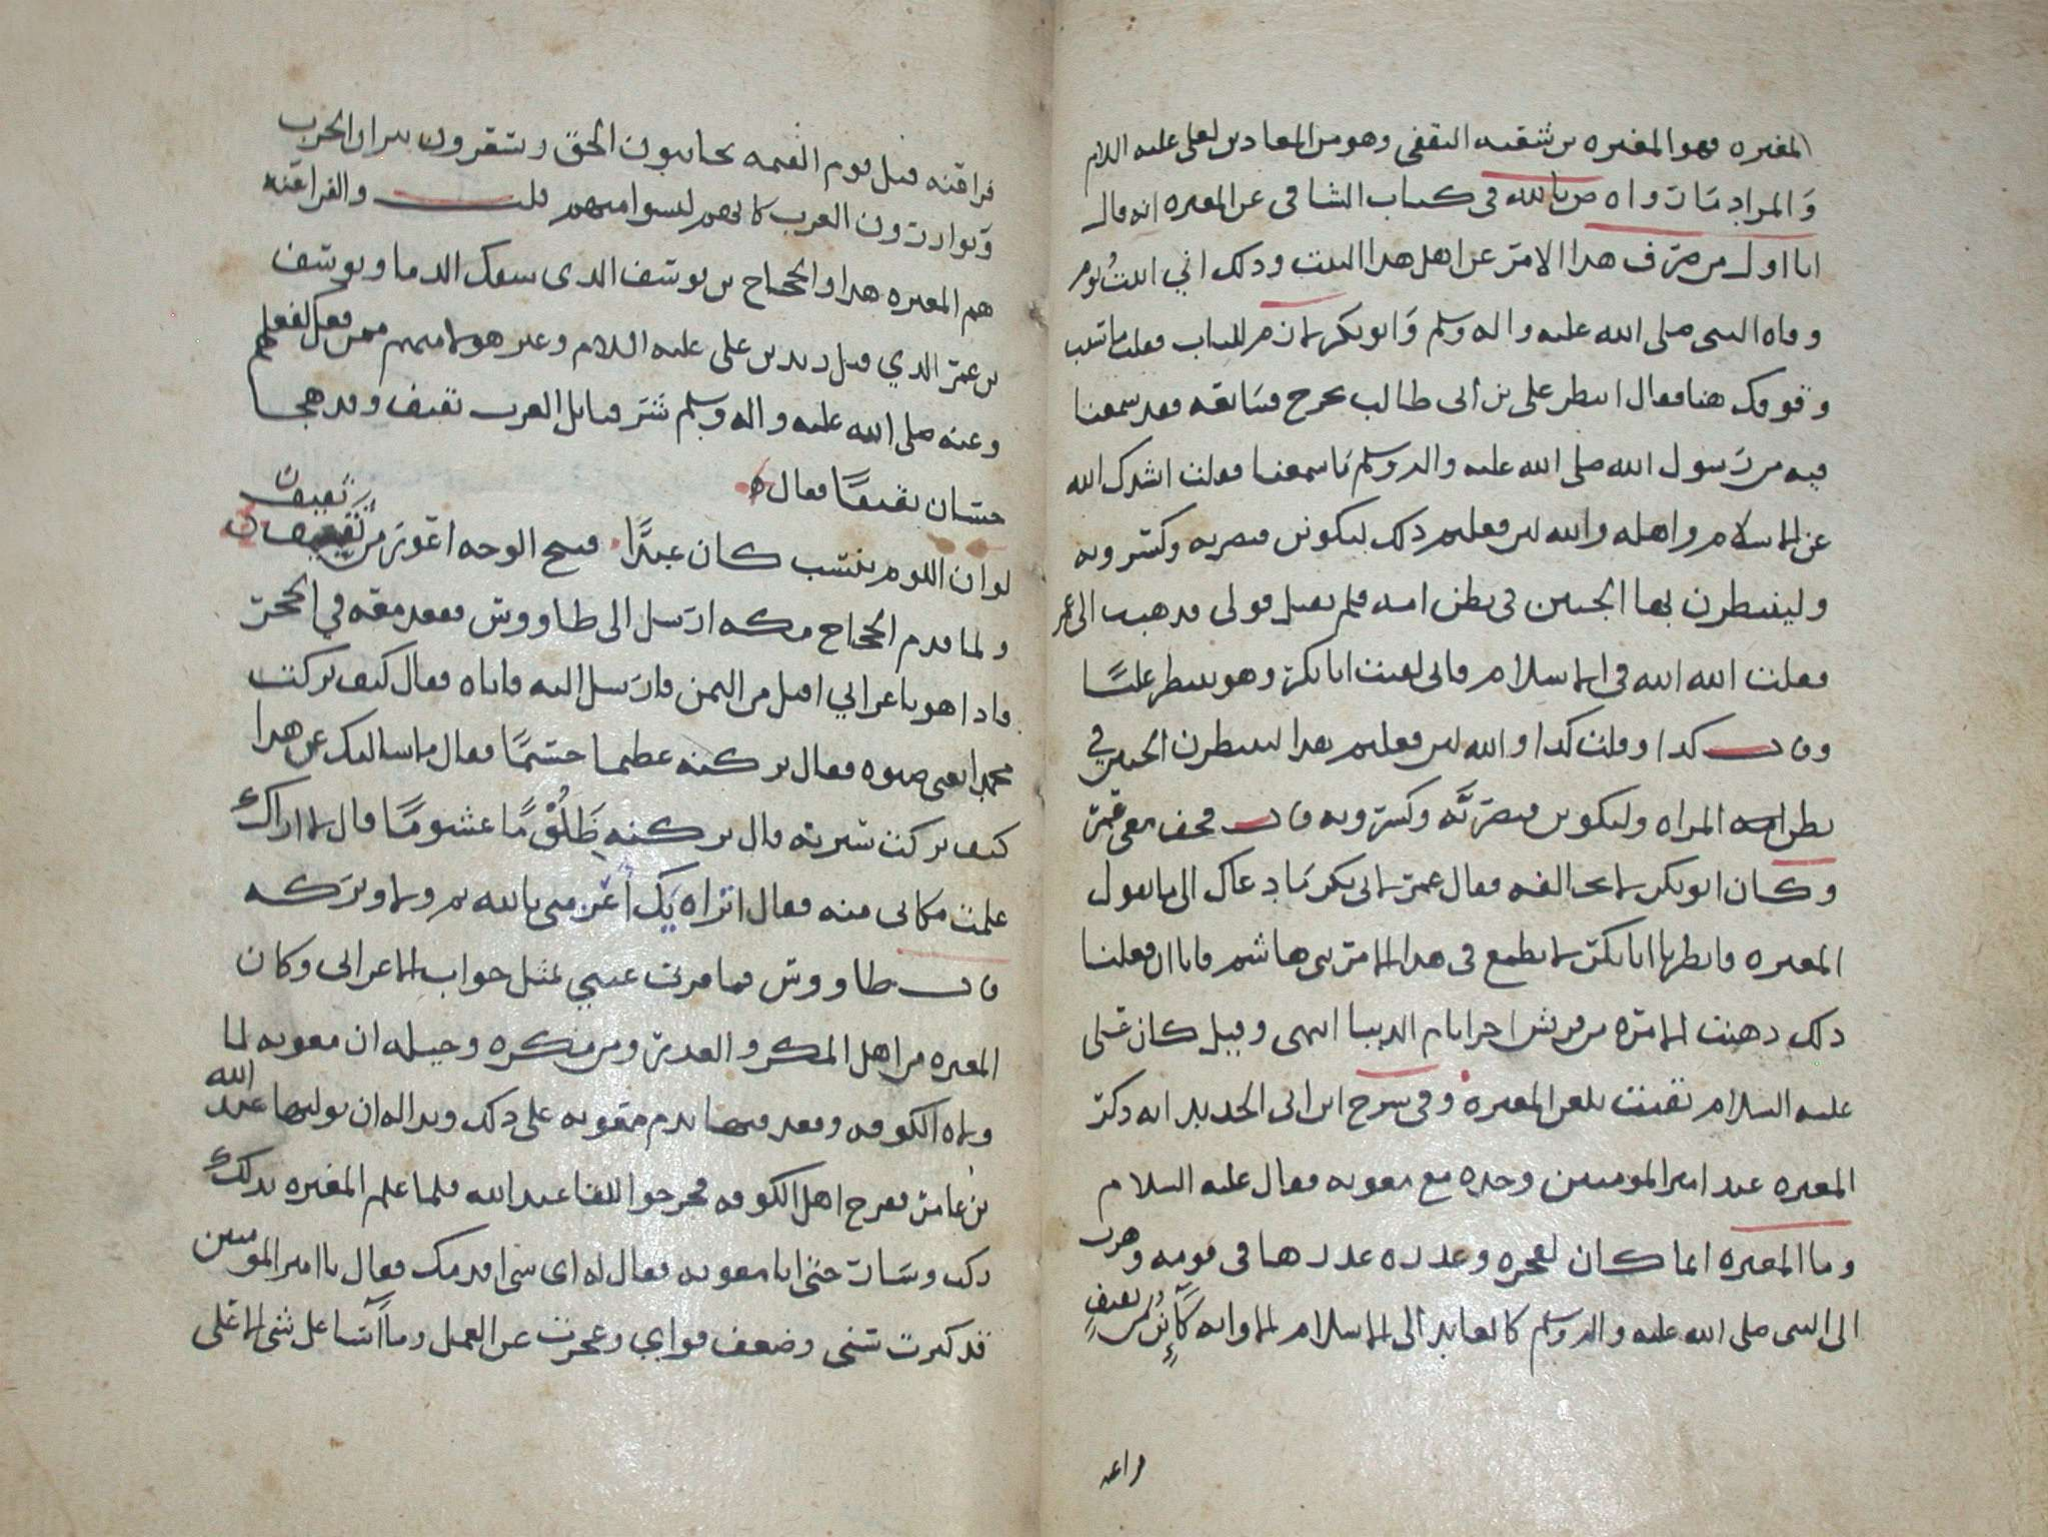 المغيره فهو المغيره بن شعبه الثقفي وهو من المعادين لعلي عليه السلام
والمراد بما رواه ص بالله في كتاب الشافي عن المغيره انه قال
انا اول من صرف هذا الامر عن اهل هذا البيت وذلك اني اتيت يوم
وفاه النبي صلى الله عليه واله وسلم وابو بكر لازم للباب فقلت ما تنتظر
وقوفك هنا فقال انتظر علي بن ابي طالب يخرج فنبايعه فقد سمعنا
فيه من رسول الله صلى الله عليه واله وسلم ما سمعنا فقلت انشدك الله
عن الاسلام واهله والله لين فعلتم ذلك ليكونن قيصريه وكسرويه
ولينتظرن بها الجنين في بطن امه فلم يقبل قولي فذهبت الى عمر
فقلت الله الله في الاسلام فاني لقيت ابا بكر وهو ينتظر عليا
وقال كذا وقلت كذا والله لين فعلتم هذا لينتظرن الجنين في
بطن امه المراه وليكونن قيصريه وكسرويه قال فخف معي عمر
وكان ابو بكر لا يخالفه فقال عمر لابي بكر ما دعاك الى ما يقول
المغيره فانظر يا ابا بكر لا يطمع في هذا الامر بني هاشم فانا ان فعلنا
ذلك ذهبت الامره من قريش اخر ايام الدنيا انتهى وقيل كان علي
عليه السلام يقنت بلعن المغيره وفي شرح ابن ابي الحديد انه ذكر
المغيره عند امير المومنين وحده مع معويه فقال عليه السلام
وما المغيره انما كان لفجره وغدره غدرها في قومه وهرب
الى النبي صلى الله عليه واله وسلم كالعايذ الى الاسلام الا وانه كائن من ثقيف
فراعنه
فراعنه قبل يوم القيمه يجانبون الحق ويسعرون نيران الحرب
ويوازرون العرب كانهم ليسوا منهم قلت والفراعنه
هم المغيره هذا والحجاج بن يوسف الذي سفك الدما ويوسف
بن عمر الذي قتل زيد بن علي عليه السلام وغير هولا منهم ممن فعل كفعلهم
وعنه صلى الله عليه واله وسلم شر قبايل العرب ثقيف وقد هجا
حسان ثقيفا فقال
لو ان اللوم ينسب كان عبدا قبيح الوجه اعور من ثقيف
ثقيف ن
ولما قدم الحجاج مكه ارسل الى طاووس فقعد معه في الحجر
فاذا هو باعرابي اقبل من اليمن فارسل اليه فاتاه فقال كيف تركت
محمدا يعني صنوه فقال تركته عظيما جسيما فقال ما سالتك عن هذا
كيف تركت سيرته قال تركته ظلوما غشوما قال لا اراك
علمت مكاني منه فقال اتراه بك اعز مني بالله ثم ولا وتركه
قال طاووس فما قرت عيني بمثل جواب الاعرابي وكان
المغيره من اهل المكر والغدر ومن مكره وحيله ان معويه لما
ولاه الكوفه وقعد فيها ندم معويه على ذلك وبدا له ان يوليها عبد الله
بن عامر ففرح اهل الكوفه فخرجوا للقا عبد الله فلما علم المغيره بذلك
ركب وسار حتى اتا معويه فقال له اي شي اقدمك فقال يا امير المومنين
قد كبرت سني وضعف قواي وعجزت عن العمل وما اسا على شي الا على